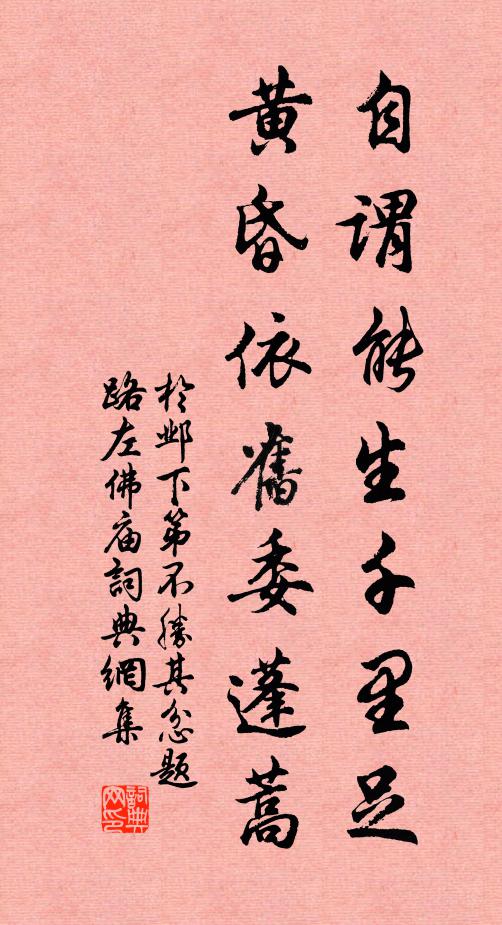 自謂能生千里足
黄昏依舊委蓬蒿
於鄴下第不勝其忿題
路左佛庙詞典網集
詞典网印